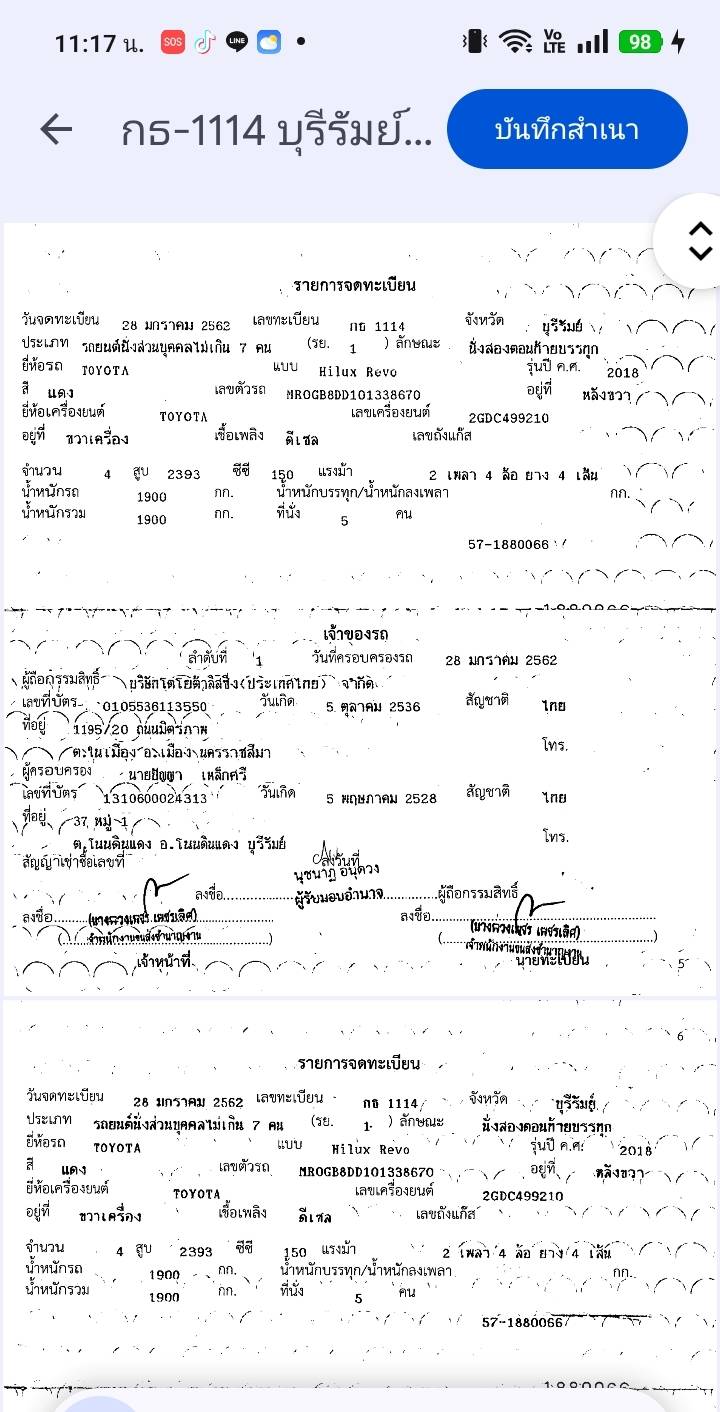 11:17 น. SOS LINE Vo LTE 98
กธ-1114 บุรีรัมย์... บันทึกสำเนา
รายการจดทะเบียน
วันจดทะเบียน 28 มกราคม 2562 เลขทะเบียน กธ 1114 จังหวัด บุรีรัมย์
ประเภท รถยนต์นั่งส่วนบุคคลไม่เกิน 7 คน (รย. 1 ) ลักษณะ นั่งสองตอนท้ายบรรทุก
ยี่ห้อรถ TOYOTA แบบ Hilux Revo รุ่นปี ค.ศ. 2018
สี แดง เลขตัวรถ MROGB8DD101338670 อยู่ที่ หลังขวา
ยี่ห้อเครื่องยนต์ TOYOTA เลขเครื่องยนต์ 2GDC499210
อยู่ที่ ขวาเครื่อง เชื้อเพลิง ดีเซล เลขถังแก๊ส
จำนวน 4 สูบ 2393 ซีซี 150 แรงม้า 2 เพลา 4 ล้อ ยาง 4 เส้น
น้ำหนักรถ 1900 กก. น้ำหนักบรรทุก/น้ำหนักลงเพลา กก.
น้ำหนักรวม 1900 กก. ที่นั่ง 5 คน
57-1880066
เจ้าของรถ
ลำดับที่ 1 วันที่ครอบครองรถ 28 มกราคม 2562
ผู้ถือกรรมสิทธิ์ บริษัทโตโยต้าลีสซิ่ง(ประเทศไทย) จำกัด
เลขที่บัตร 0105536113550 วันเกิด 5 ตุลาคม 2536 สัญชาติ ไทย
ที่อยู่ 1195/20 ถนนมิตรภาพ
ต.ในเมือง อ.เมือง นครราชสีมา โทร.
ผู้ครอบครอง นายปัญญา เหล็กศรี
เลขที่บัตร 1310600024313 วันเกิด 5 พฤษภาคม 2528 สัญชาติ ไทย
ที่อยู่ 37 หมู่ 1
ต.โนนดินแดง อ.โนนดินแดง บุรีรัมย์ โทร.
สัญญาเช่าซื้อเลขที่ ลงวันที่
ลงชื่อ นุชนาฏ อนุดวง ผู้ถือกรรมสิทธิ์
ผู้รับมอบอำนาจ
ลงชื่อ (นางดวงเพชร เพชรเลิศ) ลงชื่อ (นางดวงเพชร เพชรเลิศ)
เจ้าพนักงานขนส่งชำนาญงาน เจ้าพนักงานขนส่งชำนาญงาน
เจ้าหน้าที่ นายทะเบียน 5
6
รายการจดทะเบียน
วันจดทะเบียน 28 มกราคม 2562 เลขทะเบียน กธ 1114 จังหวัด บุรีรัมย์
ประเภท รถยนต์นั่งส่วนบุคคลไม่เกิน 7 คน (รย. 1 ) ลักษณะ นั่งสองตอนท้ายบรรทุก
ยี่ห้อรถ TOYOTA แบบ Hilux Revo รุ่นปี ค.ศ. 2018
สี แดง เลขตัวรถ MROGB8DD101338670 อยู่ที่ หลังขวา
ยี่ห้อเครื่องยนต์ TOYOTA เลขเครื่องยนต์ 2GDC499210
อยู่ที่ ขวาเครื่อง เชื้อเพลิง ดีเซล เลขถังแก๊ส
จำนวน 4 สูบ 2393 ซีซี 150 แรงม้า 2 เพลา 4 ล้อ ยาง 4 เส้น
น้ำหนักรถ 1900 กก. น้ำหนักบรรทุก/น้ำหนักลงเพลา กก.
น้ำหนักรวม 1900 กก. ที่นั่ง 5 คน
57-1880066